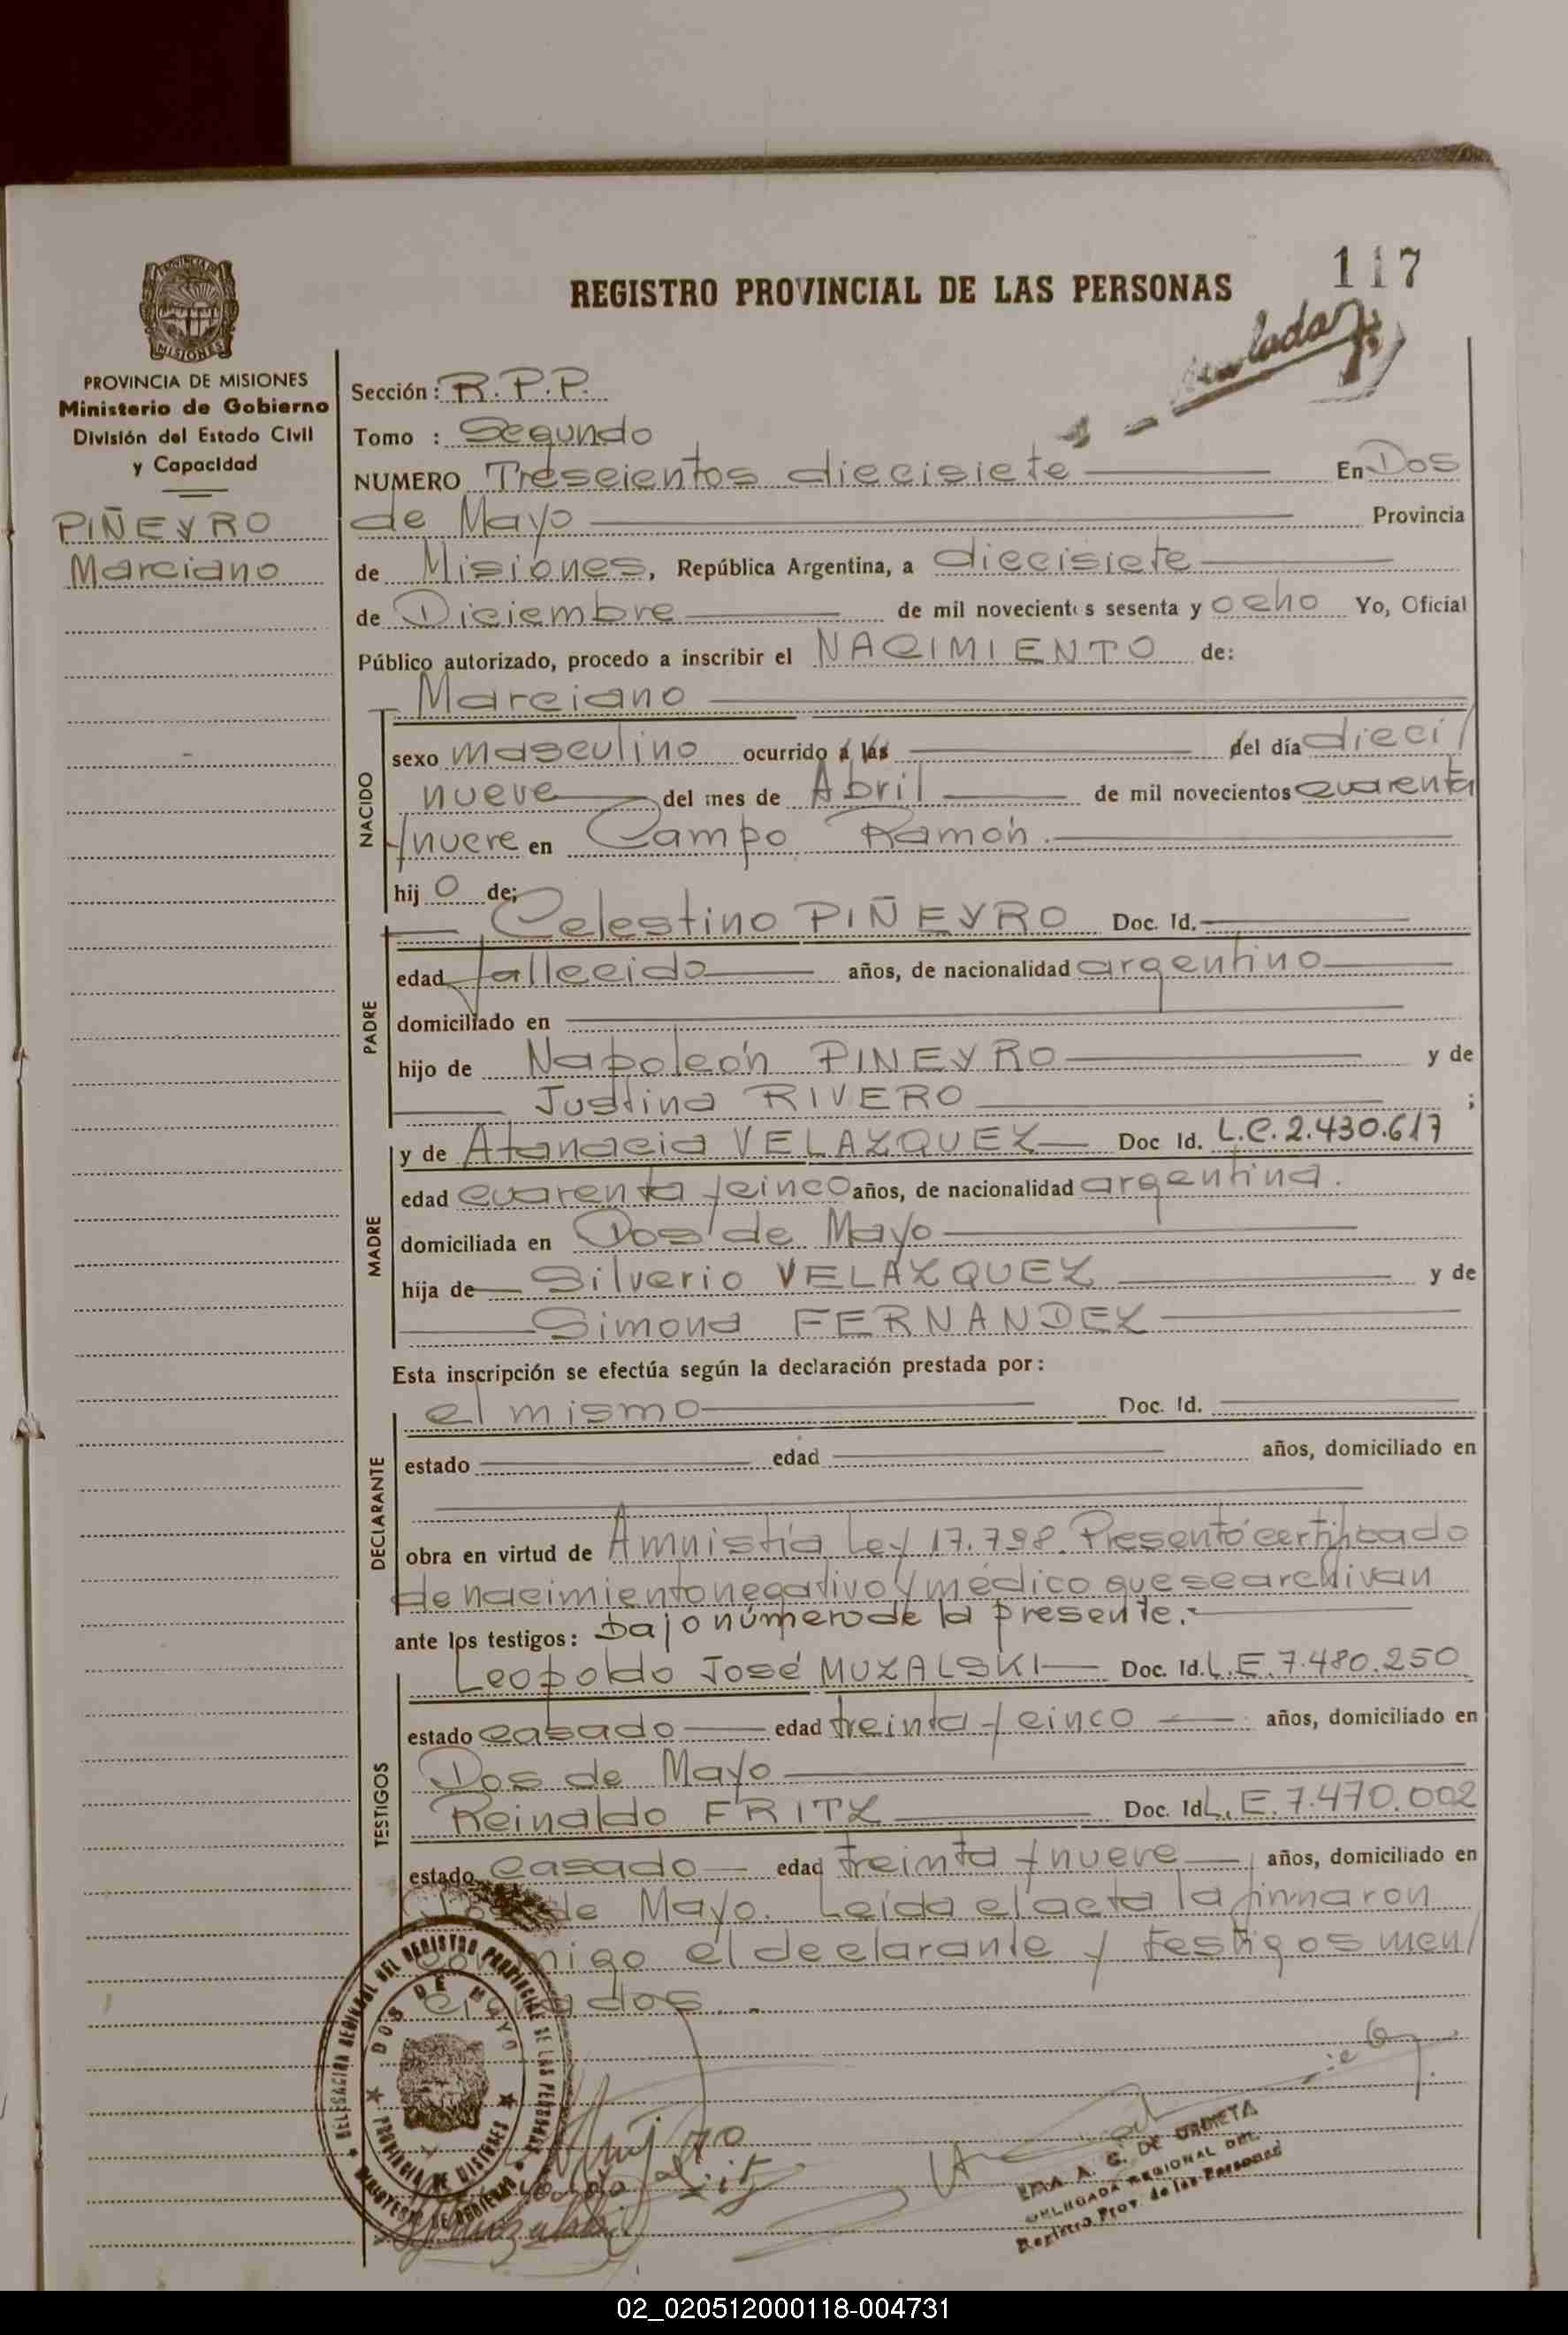 117
REGISTRO PROVINCIAL DE LAS PERSONAS
MISIONES
PROVINCIA DE MISIONES
Ministerio de Gobierno
División del Estado Civil
y Capacidad
PIÑEYRO
Marciano
Sección: R.P.P.
Tomo : Segundo
NUMERO Trescientos diecisiete En Dos
de Mayo Provincia
de Misiones, República Argentina, a diecisiete
de Diciembre de mil novecientos sesenta y ocho Yo, Oficial
Público autorizado, procedo a inscribir el NACIMIENTO de:
Marciano
NACIDO
sexo masculino ocurrido a las del día dieci/
nueve del mes de Abril de mil novecientos cuarenta
y nueve en Campo Ramón.
hij o de;
PADRE
Celestino PIÑEYRO Doc. Id.
edad fallecido años, de nacionalidad argentino
domiciliado en
hijo de Napoleón PINEYRO y de
Justina RIVERO ;
MADRE
y de Atanacia VELAZQUEZ Doc Id. L.C. 2.430.617
edad cuarenta y cinco años, de nacionalidad argentina.
domiciliada en Dos de Mayo
hija de Silverio VELAZQUEZ y de
Simona FERNANDEZ
Esta inscripción se efectúa según la declaración prestada por:
DECLARANTE
el mismo Doc. Id.
estado edad años, domiciliado en
obra en virtud de Amnistía Ley 17.798. Presentó certificado
de nacimiento negativo y médico que se archivan
ante los testigos: bajo número de la presente.-
TESTIGOS
Leopoldo José MUZALSKI Doc. Id. L.E. 7.480.250
estado casado edad treinta y cinco años, domiciliado en
Dos de Mayo
Reinaldo FRITZ Doc. Id L.E. 7.470.002
estado casado edad treinta y nueve años, domiciliado en
Dos de Mayo. Leída el acta la firmaron
conmigo el declarante y testigos men/
cionados.-
DELEGACION REGIONAL DEL REGISTRO PROVINCIAL DE LAS PERSONAS
DOS DE MAYO
PROVINCIA DE MISIONES
MINISTERIO DE GOBIERNO
A. G. DE URRIETA
DELEGADA REGIONAL DEL
Registro Prov. de las Personas
02_020512000118-004731